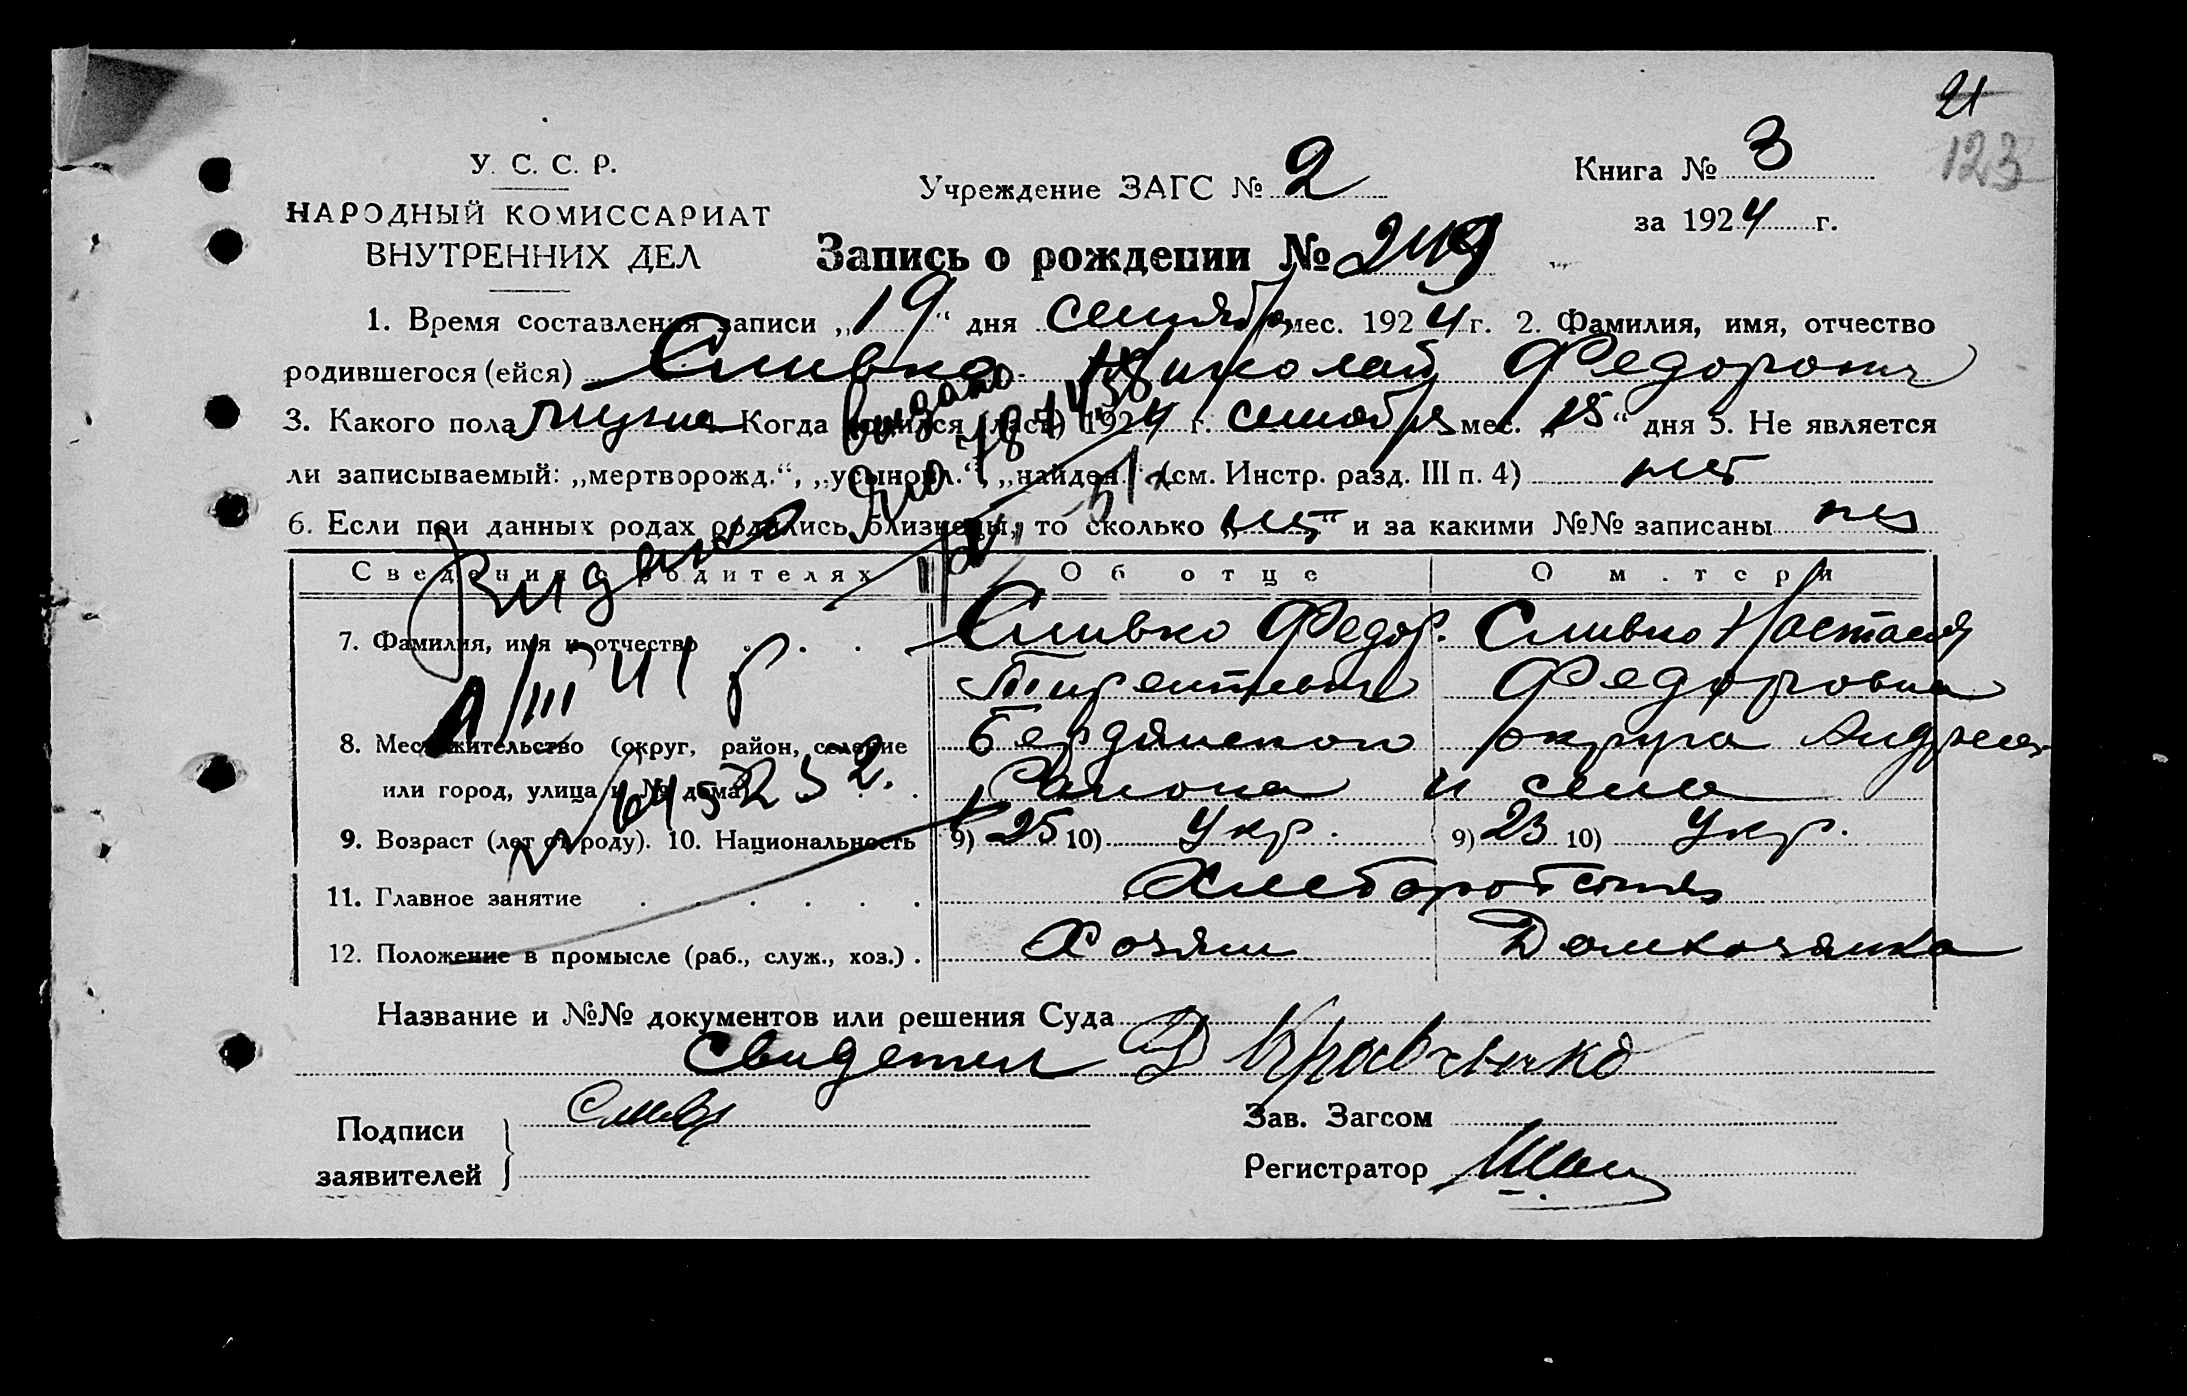 21
123
У. С. С. Р.
НАРОДНЫЙ КОМИССАРИАТ
ВНУТРЕННИХ ДЕЛ
Учреждение ЗАГС № 2
Книга № 3
за 1924 г.
Запись о рождении № 249
1. Время составления записи „19“ дня сентября мес. 1924 г. 2. Фамилия, имя, отчество
родившегося (ейся) Сливко Николай Федорович
3. Какого пола мужс. 4. Когда родился (лась) 1924 г. сентября мес. „15“ дня 5. Не является
ли записываемый: „мертворожд.“, „усыновл.“, „найден.“ (см. Инстр. разд. III п. 4) нет
6. Если при данных родах родились близнецы, то сколько „нет“ и за какими №№ записаны нет
Сведения о родителях Об отце О матери
7. Фамилия, имя и отчество . . . Сливко Федор. Сливко Настасия
Терентьевич Федоровна
8. Местожительство (округ, район, селение Бердянского округа Андреев
или город, улица и № дома) . . . Района и села
9. Возраст (лет от роду). 10. Национальность 9) 25 10) Укр. 9) 23 10) Укр.
11. Главное занятие . . . . . . Хлеборобство
12. Положение в промысле (раб., служ., хоз.) . Хозяин Домхозяйка
Выдано
Видано
III 41 р
Название и №№ документов или решения Суда
Свидетел Д Кравченко
Подписи
заявителей
Зав. Загсом
Регистратор